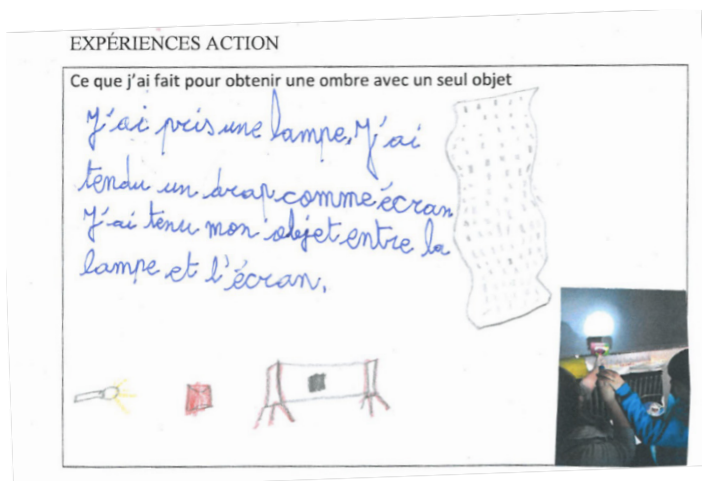 EXPÉRIENCES ACTION
Ce que j'ai fait pour obtenir une ombre avec un seul objet
J'ai pris une lampe, J'ai
tendu un drap comme écran
J'ai tenu mon objet entre la
lampe et l'écran.